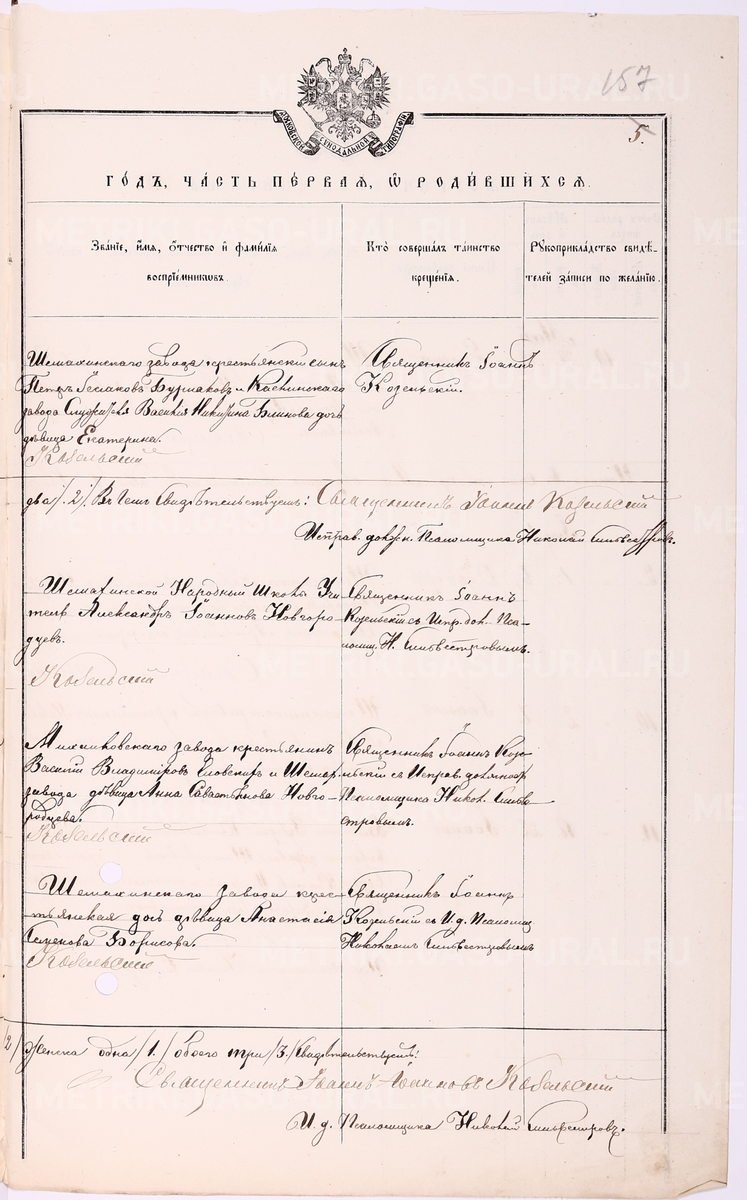 157
5.
МОСКОВСКОЙ СѴНОДАЛЬНОЙ ТИПОГРАФІИ
ГО́ДЪ, ЧА́СТЬ ПЕ́РВАЯ, Ѽ РОДИ́ВШИХСЯ.
Зва́нїе, и́мя, о́тчество и҆ фами́лїя
воспрїе́мниковъ.
Кто̀ соверша́лъ та́инство
креще́нїя.
Рꙋкоприкла́дство свидѣ́-
телей за́писи по жела́нїю.
Шемахинскаго завода крестьянскій сынъ
Петръ Исааковъ Бурмаковъ и Каслинскаго
завода Служителя Василія Никитина Блинова дочь
дѣвица Екатерина.
Козельскій
Священникъ Іоаннъ
Козельскій.
два /.2/. Въ чемъ Свидѣтельствуемъ: Священникъ Іоаннъ Козельскій
Исправ. долж. Псаломщика Николай Сильвестровъ.
Шемахинской Народной Школы Учи-
тель Александръ Іоанновъ Новгоро-
дцевъ.
Козельскій
Священникъ Іоаннъ
Козельскій съ Испр. дол. Пса-
ломщ. Н. Сильвестровымъ.
завода крестьянинъ
Василій Владиміровъ и Шемах.
завода дѣвица Анна Савастьянова Новго-
родцева.
Козельскій
Священникъ Іоаннъ Козе-
льскій съ Исправ. должност.
Псаломщика Никол. Сильве-
стровымъ.
Шемахинскаго завода крес-
тьянская дочь дѣвица Анастасія
Семенова Борисова.
Козельскій
Священникъ Іоаннъ
Козельскій съ И. д. Псаломщ.
Николаемъ Сильвестровымъ
/2/ Женска одна /1./ обоего три /3./ Свидѣтельствуемъ:
Священникъ Іоаннъ Іоанновъ Козельскій
И. д. Псаломщика Николай Сильвестровъ.